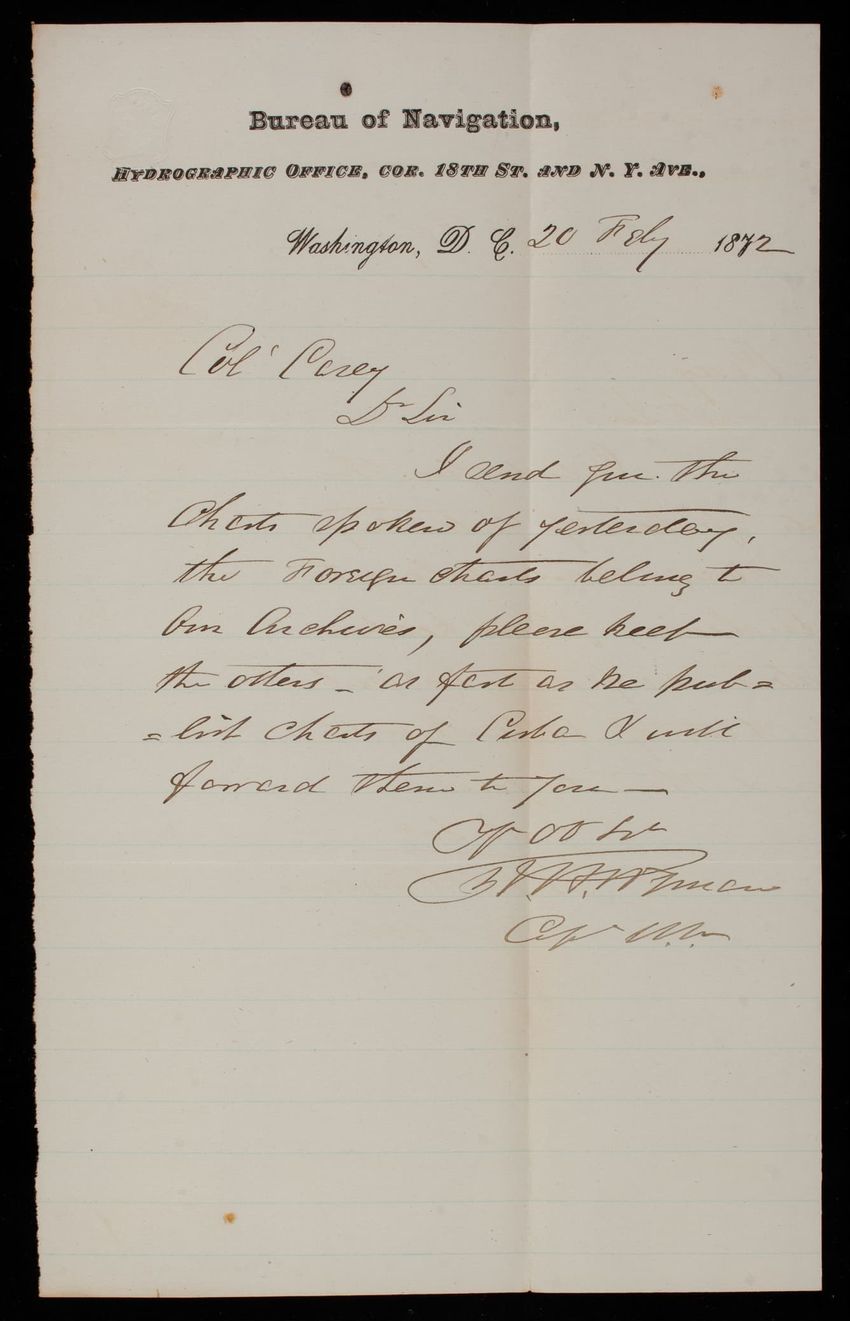 Bureau of Navigation,
Hydrographic Office, cor. 18th St. and N. Y. Ave.,
Washington, D. C. 20 Feby 1872
Col Casey
Dr Sir
I send you the
Charts spoken of yesterday,
the Foreign charts belong to
Our Archives, please keep
the others - as fast as we pub=
=lish charts of Cuba I will
forward them to you —
Yr Ob Sr
R. H. Wyman
Capt U.S.N.